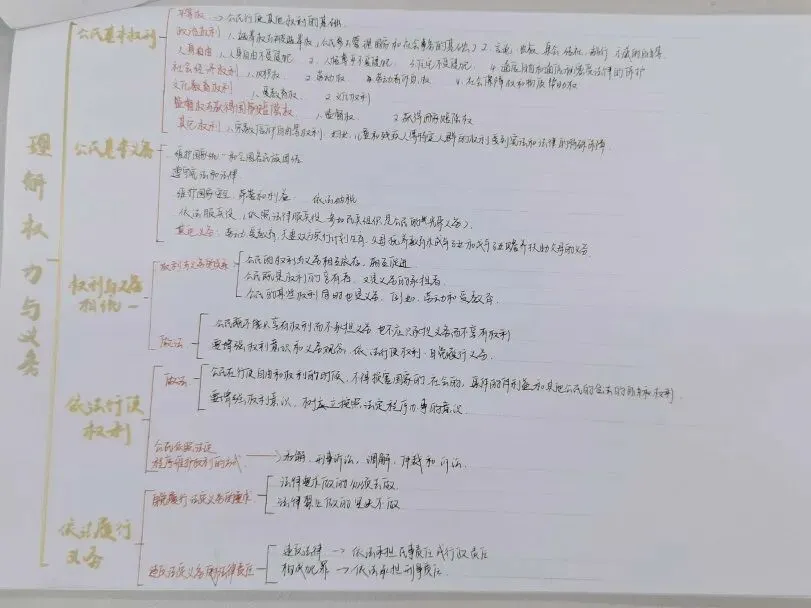 理解权力与义务
公民基本权利
平等权 → 公民行使其他权利的基础.
政治权利 1.选举权与被选举权 (公民参与管理国家和社会事务的基础) 2.言论、出版、集会、结社、游行、示威的自由等.
人身自由 1.人身自由不受侵犯 2.人格尊严不受侵犯 3.住宅不受侵犯. 4.通信自由和通信秘密受法律的保护
社会经济权利 1.财产权 2.劳动权 3.劳动者休息权 4.社会保障权和物质帮助权
文化教育权利 1.受教育权 2.文化权利
监督权与获得国家赔偿权 1.监督权 2.获得国家赔偿权
其它权利 1.宗教信仰自由等权利. 妇女、儿童和残疾人等特定人群的权利受到宪法和法律的特殊保障
公民基本义务
维护国家统一和全国各民族团结
遵守宪法和法律
维护国家安全、荣誉和利益 依法纳税
依法服兵役 (依照法律服兵役、参加民兵组织是公民的光荣义务).
其它义务: 劳动、受教育, 夫妻双方实行计划生育, 父母抚养教育未成年子女和成年子女赡养扶助父母的义务
权利与义务相统一
权利与义务的关系
公民的权利与义务相互依存、相互促进
公民既是权利的享有者, 又是义务的承担者.
公民的某些权利同时也是义务. 例如: 劳动和受教育.
做法
公民既不能只享有权利而不承担义务 也不应只承担义务而不享有权利
要增强权利意识和义务观念, 依法行使权利、自觉履行义务.
依法行使权利
做法
公民在行使自由和权利的时候, 不得损害国家的、社会的、集体的利益和其他公民的合法的自由和权利.
要增强权利意识, 树立按照法定程序办事的意识
公民依照法定程序维护权利的方式 → 和解、刑事诉讼, 调解, 仲裁和诉讼.
依法履行义务
自觉履行法定义务的要求
法律要求做的必须去做
法律禁止做的坚决不做
违反法定义务须承担法律责任
违反法律 → 依法承担民事责任或行政责任
构成犯罪 → 依法承担刑事责任